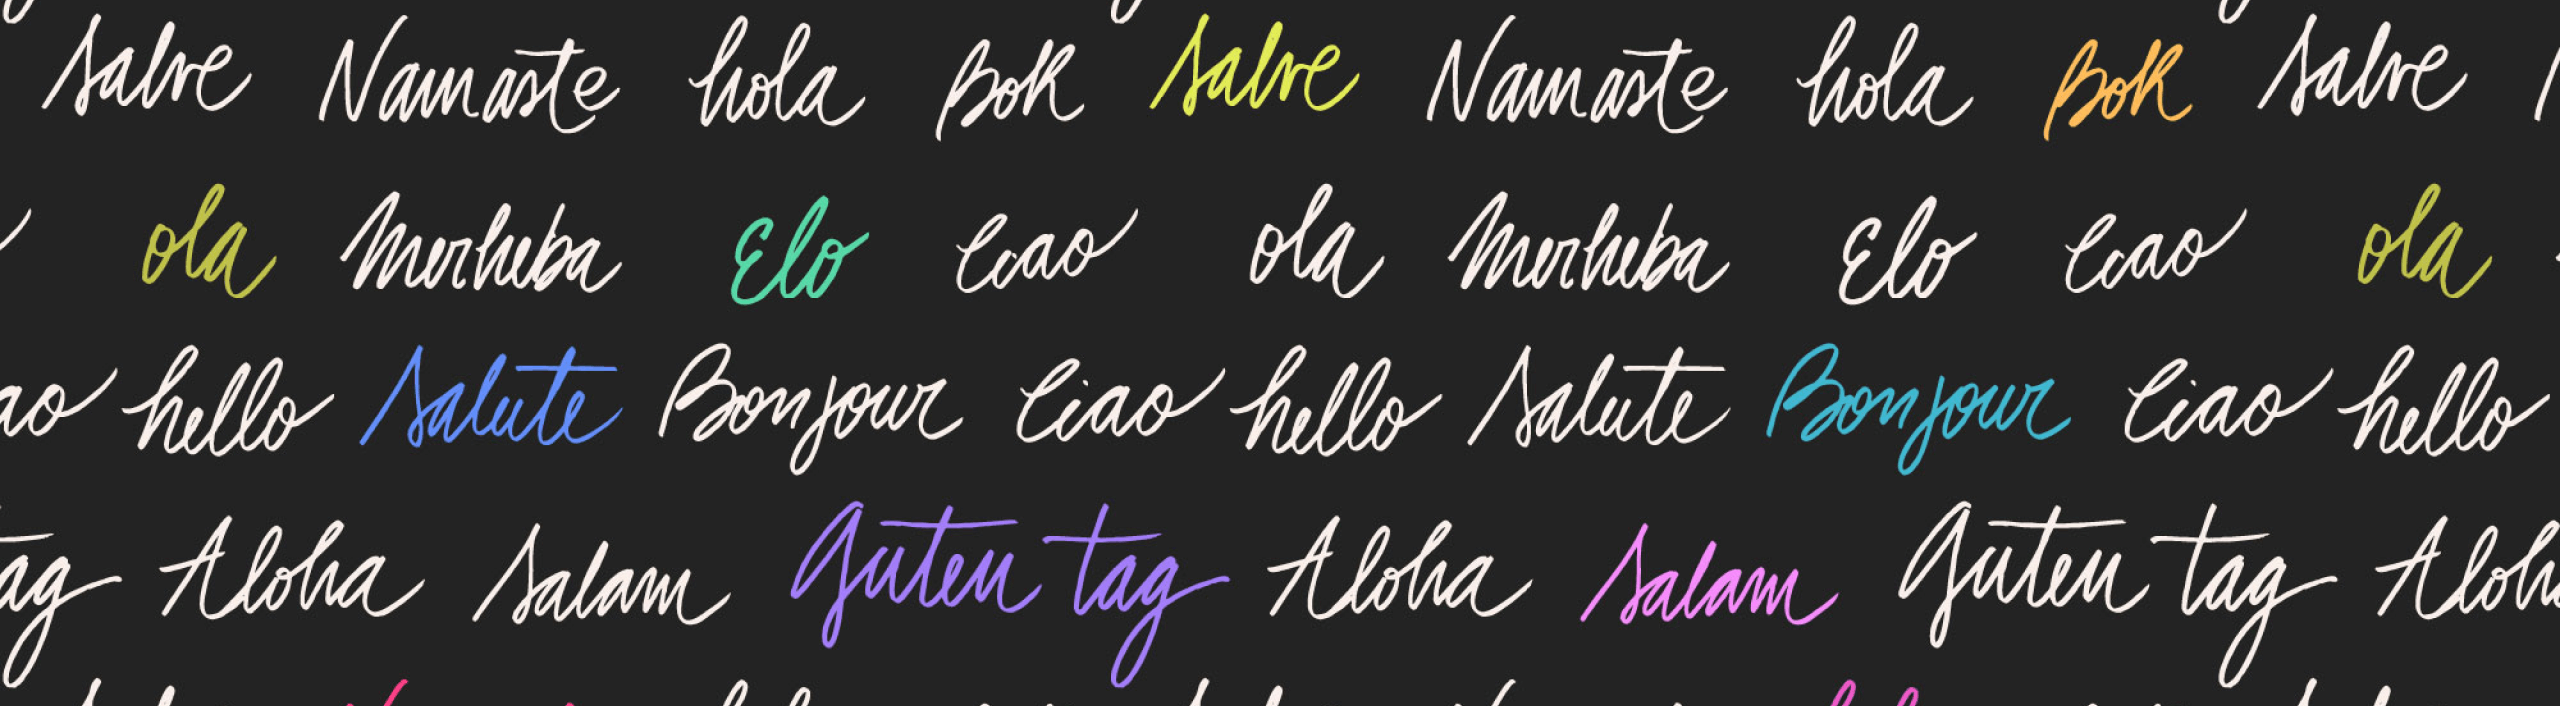 Salve Namaste hola Bok Salve Namaste hola Bok Salve
ola Merheba Elo Ciao ola Merheba Elo Ciao ola
ao hello Salute Bonjour Ciao hello Salute Bonjour Ciao hello
tag Aloha Salam Guten tag Aloha Salam Guten tag Aloh